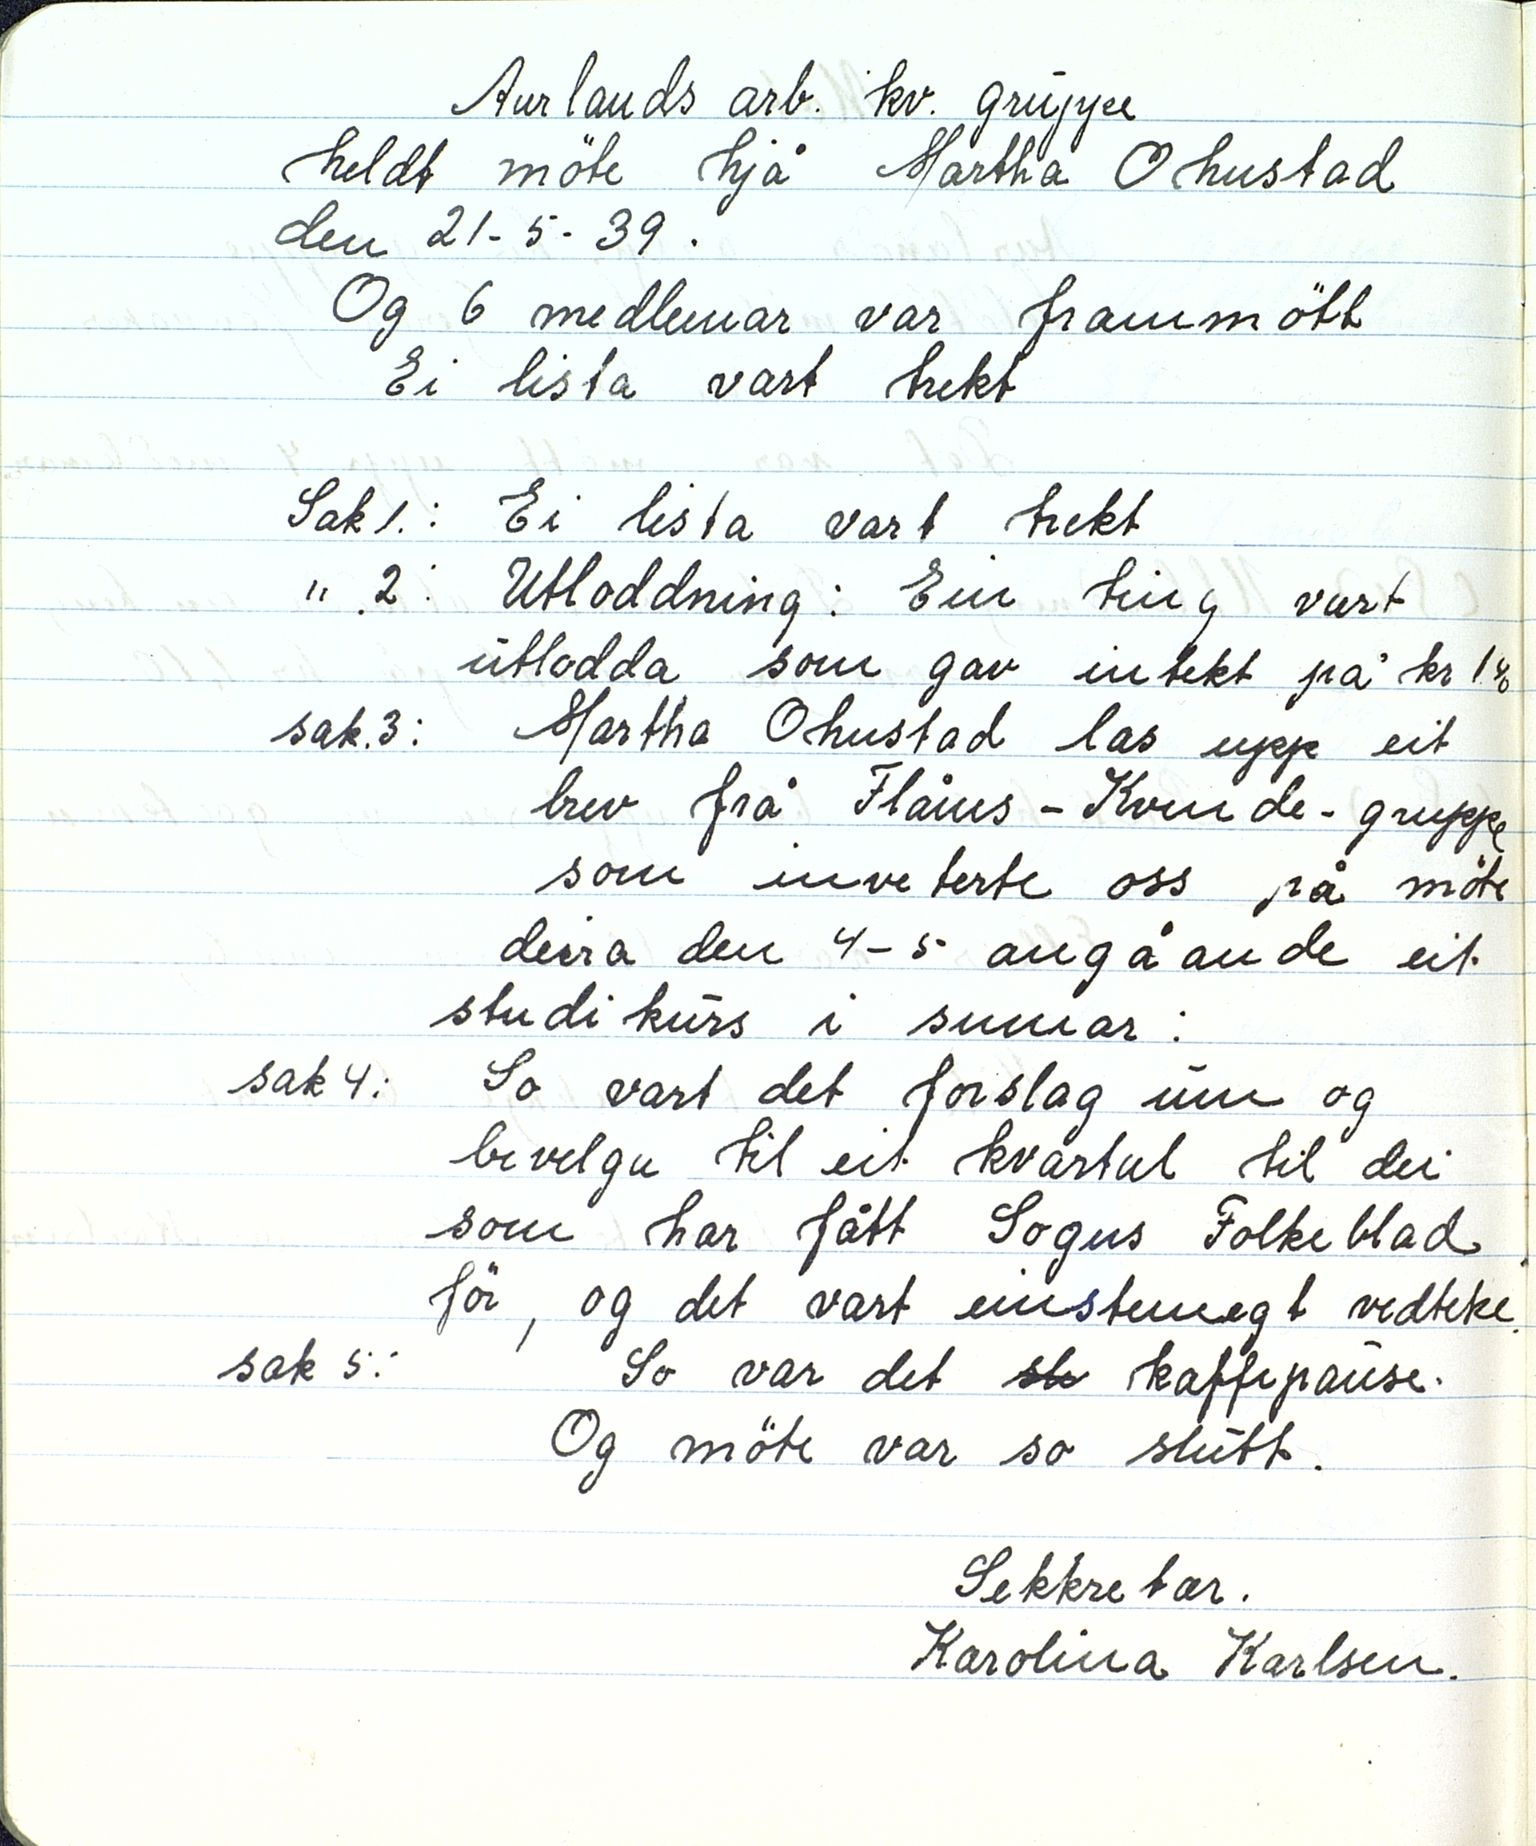 Aurlands arb. kv. gruppe
heldt möte hjå Martha Ohnstad
den 21-5-39.
Og 6 medlemar var frammött
Ei lista vart trekt
Sak 1.: Ei lista vart trekt
" 2: Utloddning: Ein ting vart
utlodda som gav intekt på kr 1
sak.3: Martha Ohnstad las upp eit
brev frå Flåms-Kvinde-gruppe
som inveterte oss på möte
deira den 4-5 angåande eit
studikurs i sumar:
sak 4: So vart det forslag um og
bevelga til eit kvartal til dei
som har fått Sogns Folkeblad
för, og det vart einstemegt vedteke.
sak 5: So var det kaffepause.
Og möte var so slutt.
Sekkretær.
Karolina Karlsen.